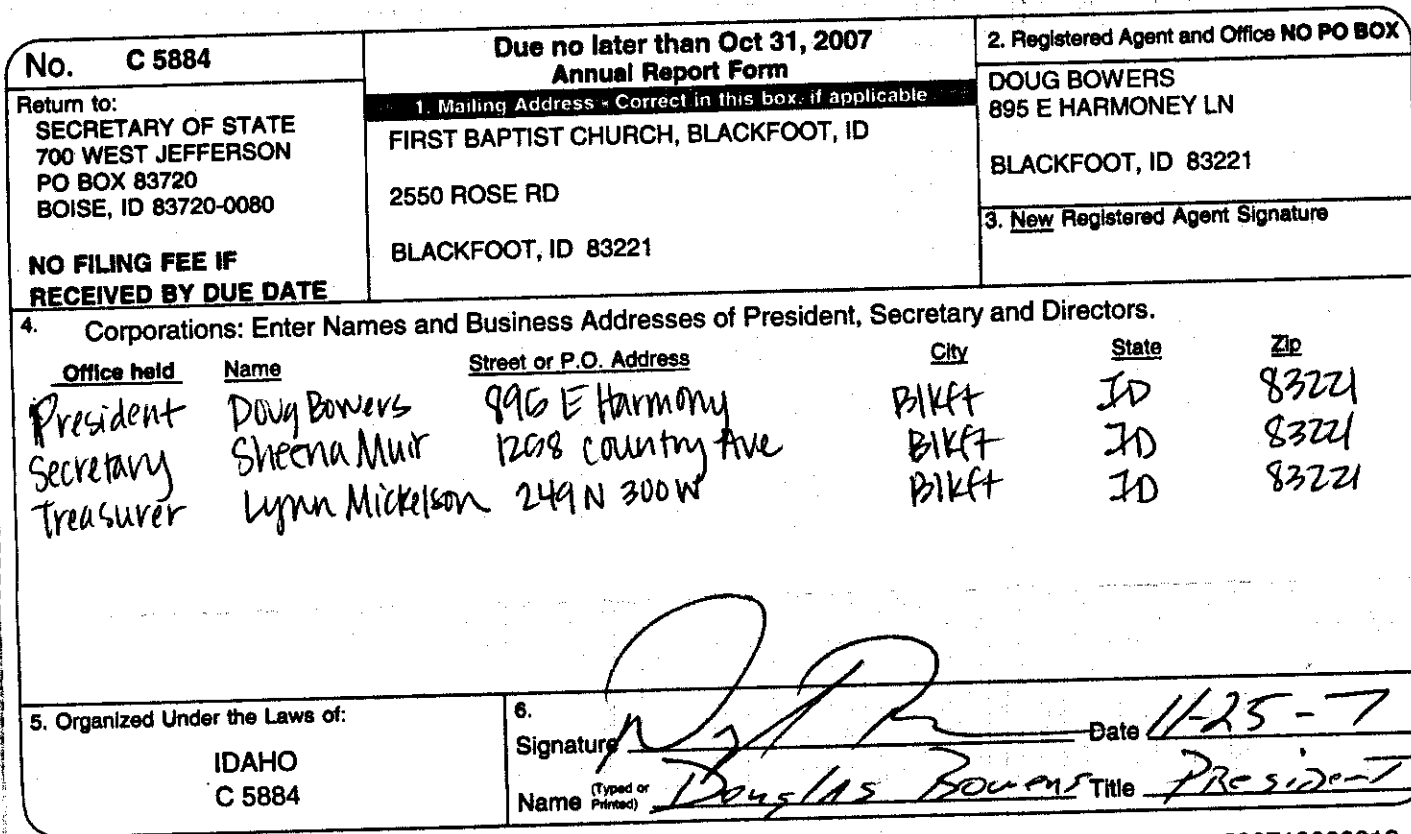 No. C 5884
Return to:
SECRETARY OF STATE
700 WEST JEFFERSON
PO BOX 83720
BOISE, ID 83720-0080
NO FILING FEE IF
RECEIVED BY DUE DATE
Due no later than Oct 31, 2007
Annual Report Form
1. Mailing Address - Correct in this box. if applicable
FIRST BAPTIST CHURCH, BLACKFOOT, ID
2550 ROSE RD
BLACKFOOT, ID 83221
2. Registered Agent and Office NO PO BOX
DOUG BOWERS
895 E HARMONEY LN
BLACKFOOT, ID 83221
3. New Registered Agent Signature
4. Corporations: Enter Names and Business Addresses of President, Secretary and Directors.
Office held Name Street or P.O. Address City State Zip
President Doug Bowers E Harmony Blkft ID 83221
Secretary Sheena Muir Country Ave Blkft ID 83221
Treasurer Lynn Mickelson 249 N 300 W Blkft ID 83221
5. Organized Under the Laws of:
IDAHO
C 5884
6.
Signature Date 11-25-7
Name (Typed or Printed) Douglas Bowers Title President